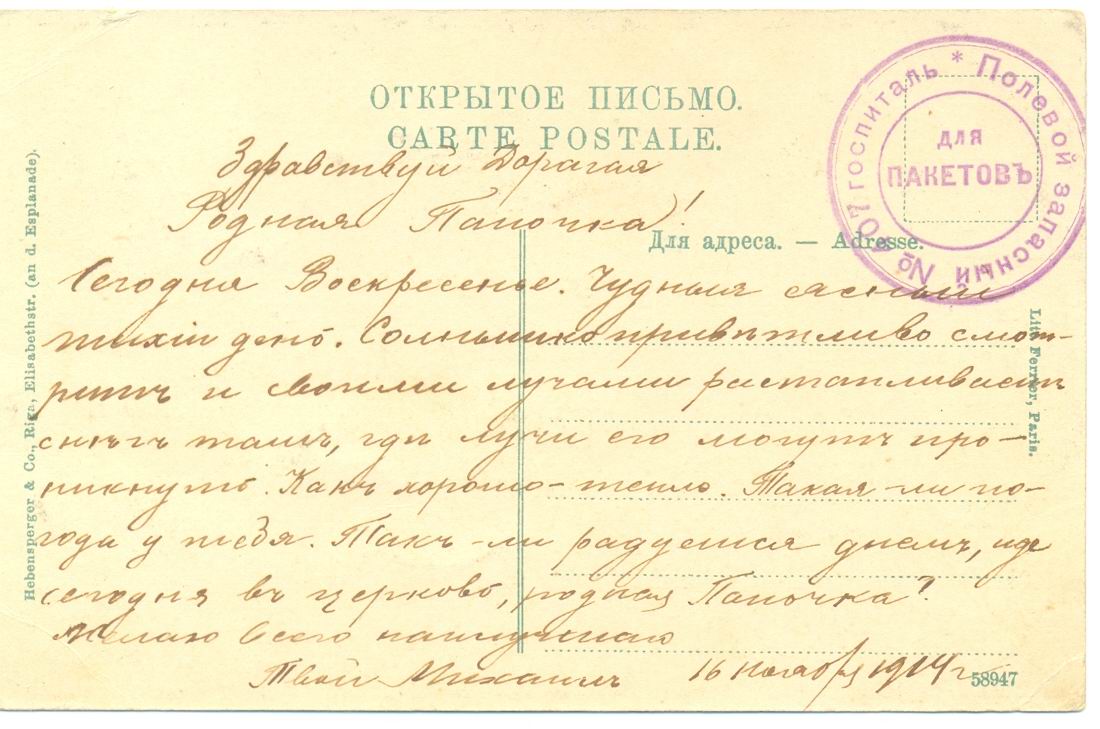 ОТКРЫТОЕ ПИСЬМО.
CARTE POSTALE.
* Полевой запасный № 107 госпиталь
для
ПАКЕТОВЪ
Здравствуй Дорогая
Родная Папочка!
Для адреса. — Adresse.
Сегодня Воскресенье. Чудный ясный
тихій день. Солнышко привѣтливо смот-
ритъ и своими лучами растапливаетъ
снѣгъ тамъ, гдѣ лучи его могутъ про-
никнуть. Какъ хорошо-тепло. Такая-ли по-
года у тебя. Такъ-ли радуешься днемъ, идя
сегодня въ церковь, родная Папочка?
Желаю всего наилучшаго
Твой Михаилъ
16 ноября 1914 г
58947
Hebensperger & Co., Riga, Elisabethstr. (an d. Esplanade).
Lith Ferrier, Paris.